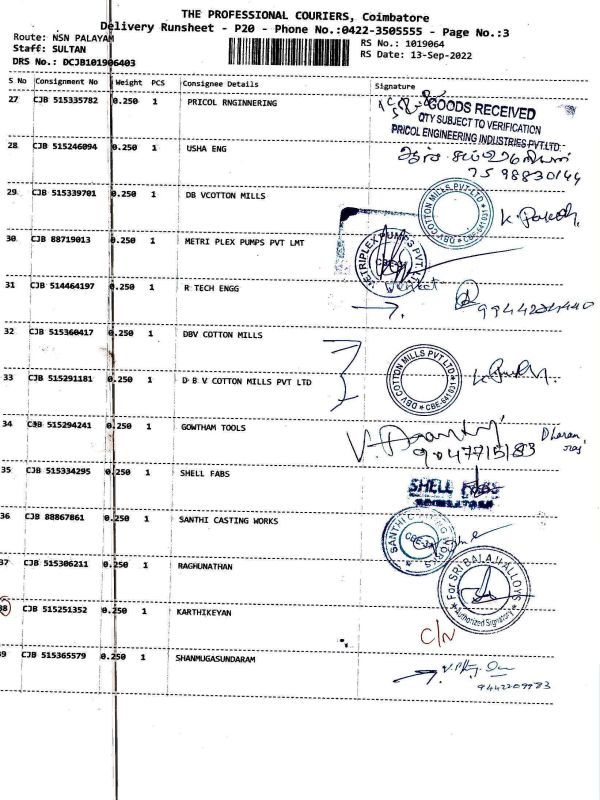 THE PROFESSIONAL COURIERS, Coimbatore
Delivery Runsheet - P20 - Phone No.:0422-3505555 - Page No.:3
Route: NSN PALAYAM
RS No.: 1019064
Staff: SULTAN
RS Date: 13-Sep-2022
DRS No.: DCJB101906403
S No Consignment No Weight PCS Consignee Details Signature
27 CJB 515335782 0.250 1 PRICOL RNGINNERING
GOODS RECEIVED
QTY SUBJECT TO VERIFICATION
PRICOL ENGINEERING INDUSTRIES PVT.LTD.
28 CJB 515246094 0.250 1 USHA ENG
7598830144
29 CJB 515339701 0.250 1 DB VCOTTON MILLS
DBV COTTON MILLS PVT LTD
30 CJB 88719013 0.250 1 METRI PLEX PUMPS PVT LMT
METRIPLEX PUMPS PVT LTD
31 CJB 514464197 0.250 1 R TECH ENGG
32 CJB 515360417 0.250 1 DBV COTTON MILLS
33 CJB 515291181 0.250 1 D B V COTTON MILLS PVT LTD
DBV COTTON MILLS PVT LTD
34 CJB 515294241 0.250 1 GOWTHAM TOOLS
9047715183
35 CJB 515334295 0.250 1 SHELL FABS
SHELL FABS
36 CJB 88867861 0.250 1 SANTHI CASTING WORKS
SANTHI CASTING WORKS
37 CJB 515306211 0.250 1 RAGHUNATHAN
For SRI BALAJI ALLOYS
Authorized Signatory
38 CJB 515251352 0.250 1 KARTHIKEYAN
C/N
39 CJB 515365579 0.250 1 SHANMUGASUNDARAM
9442209983